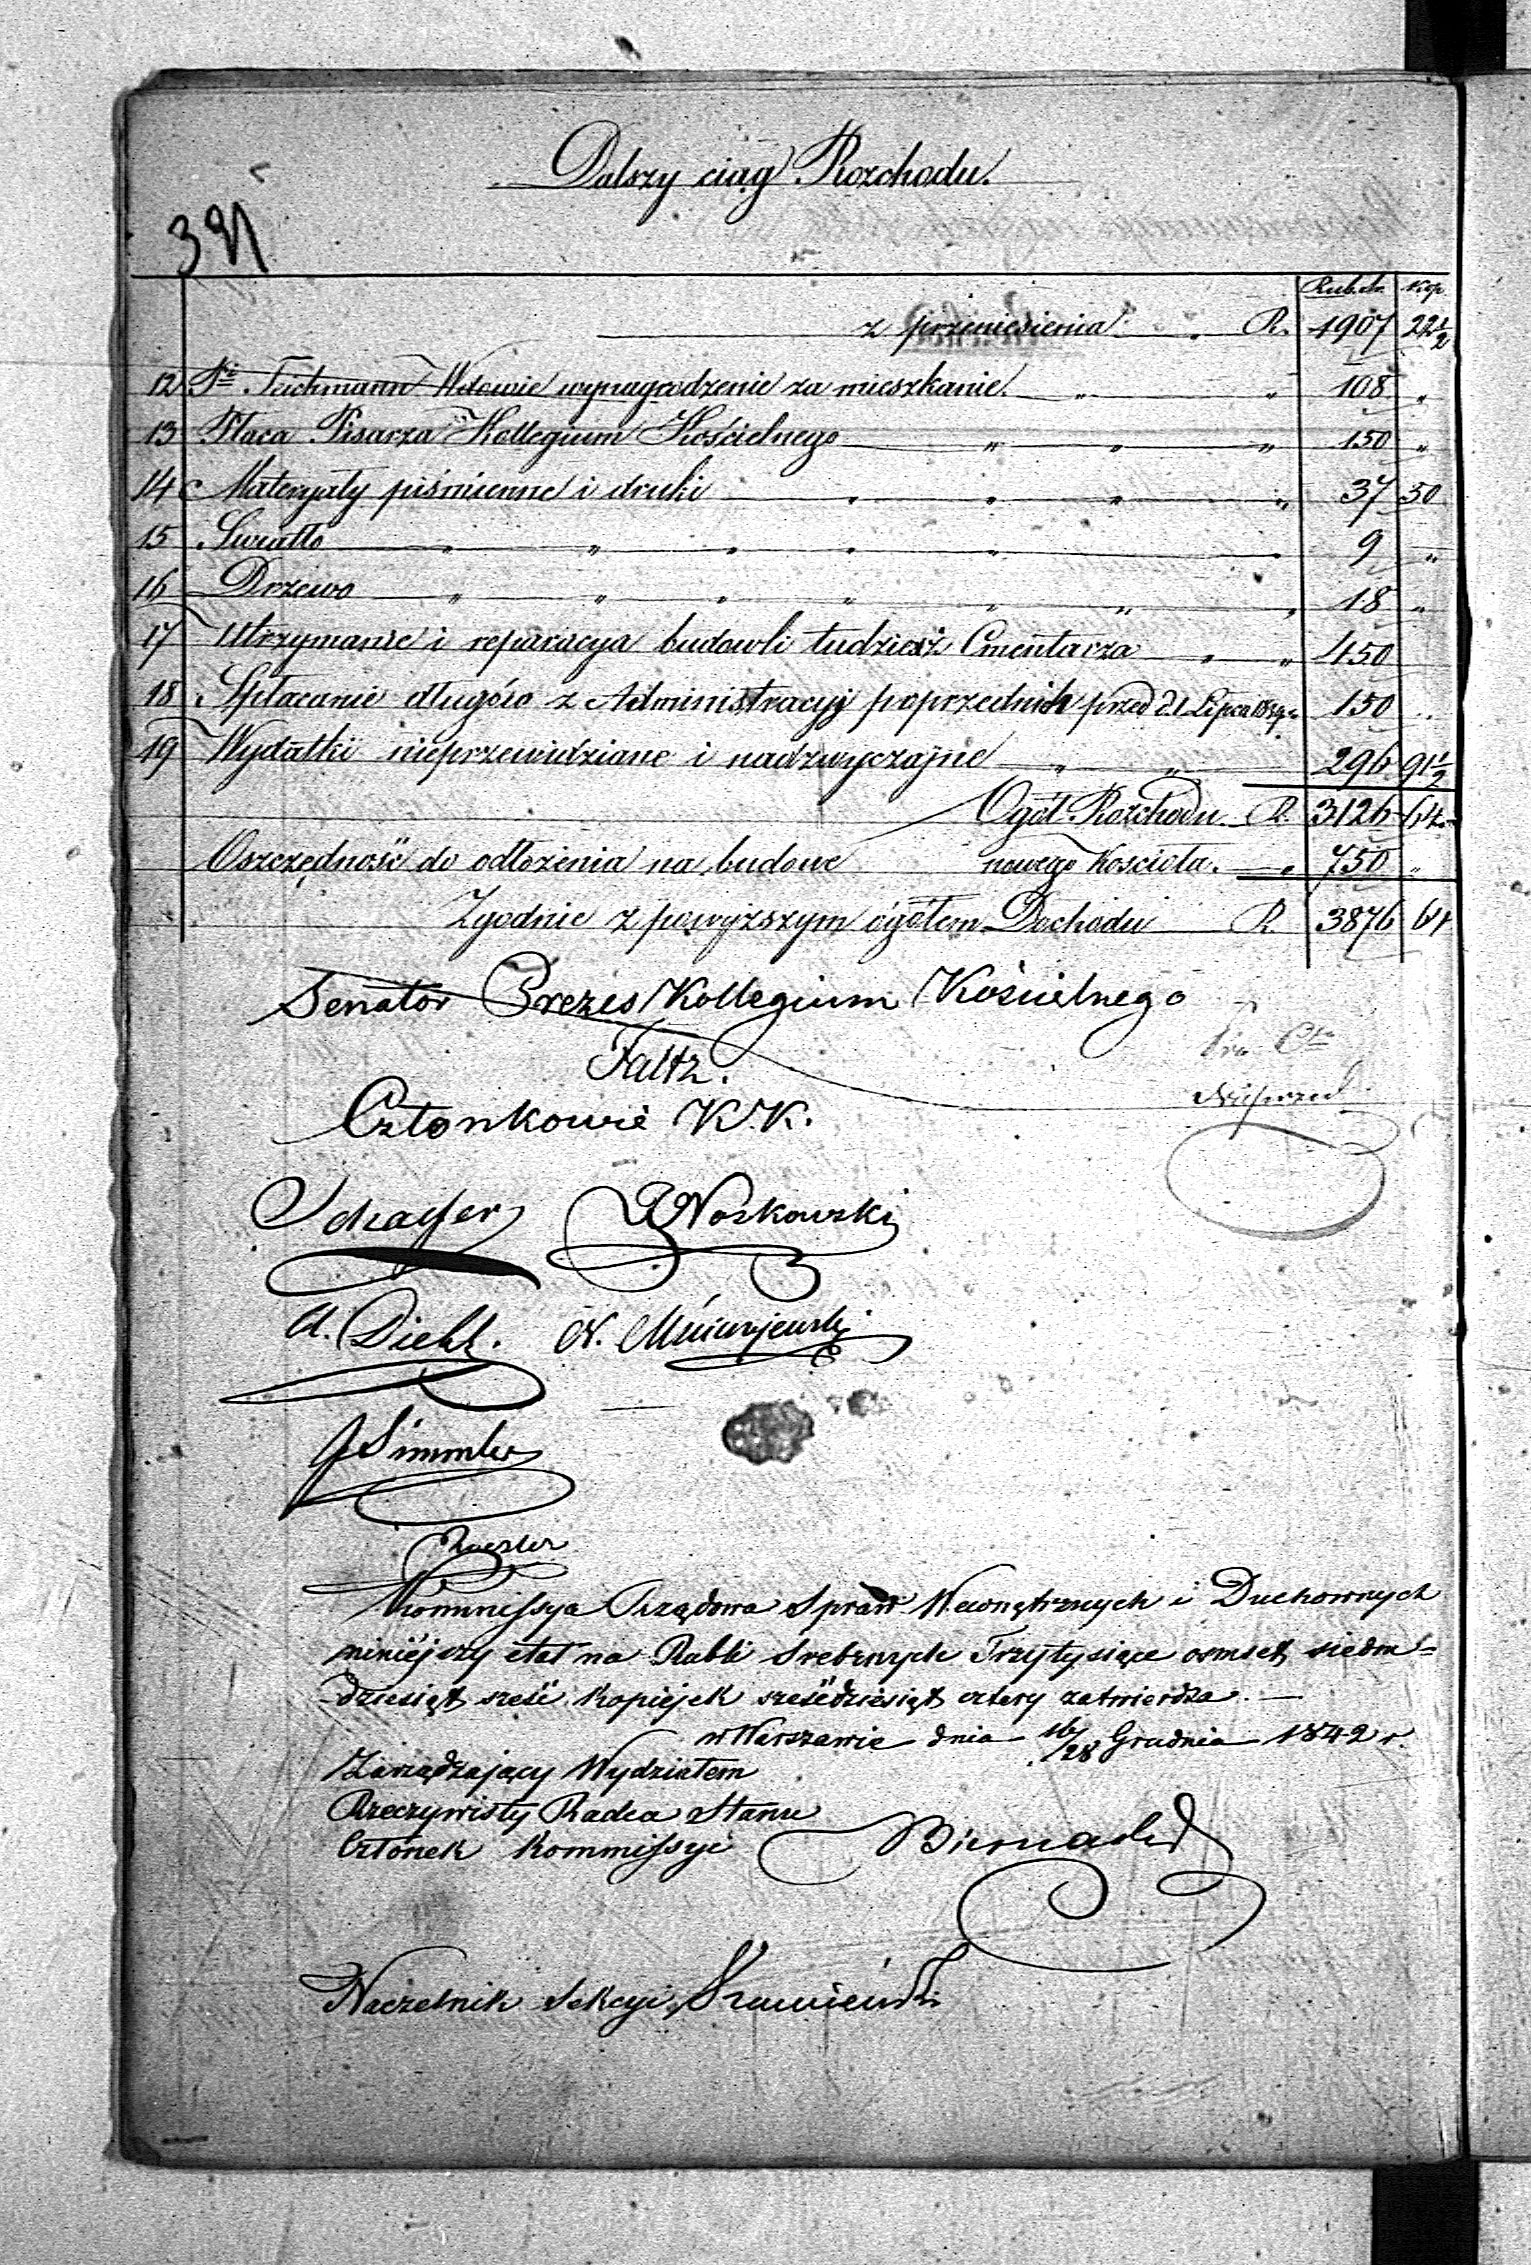 Dalszy ciąg Rozchodu.
391
Rub. sr. kop.
z przeniesienia R. 1907 22½
12 Pi Tuchmann Wdowie wynagrodzenie za mieszkanie " " 108 "
13 Płaca Pisarza Kollegium Kościelnego " " " 150 "
14 Materyały piśmienne i druki " " " " 37 50
15 Swiatło " " " " " " 9 "
16 Drzewo " " " " " " " 18 "
17 Utrzymanie i reparacya budowli tudzież Cmentarza " " 450
18 Spłacanie długów z Administracyj poprzednich przed 21 Lipca 150 "
19 Wydatki nieprzewidziane i nadzwyczajne " " 296 91½
Ogół Rozchodu R. 3126 64
Oszczędność do odłożenia na budowę nowego Kościoła. " 750 "
Zgodnie z powyższym ogółem Dochodu R. 3876 64
Senator Prezes Kollegium Kościelnego
Faltz.
Członkowie K.K.
Schaeffer Noskowski
A. Diehl.
J Simmler
Kommissya Rządowa Spraw Wewnętrznych i Duchownych
niniejszy etat na Rubli Srebrnych Trzytysiące osmset siedm=
dziesiąt sześć kopiejek sześćdziesiąt cztery zatwierdza. —
w Warszawie dnia 16/28 Grudnia 1842 r.
Zarządzający Wydziałem
Rzeczywisty Radca Stanu
Członek Kommissyi
Naczelnik Sekcyi